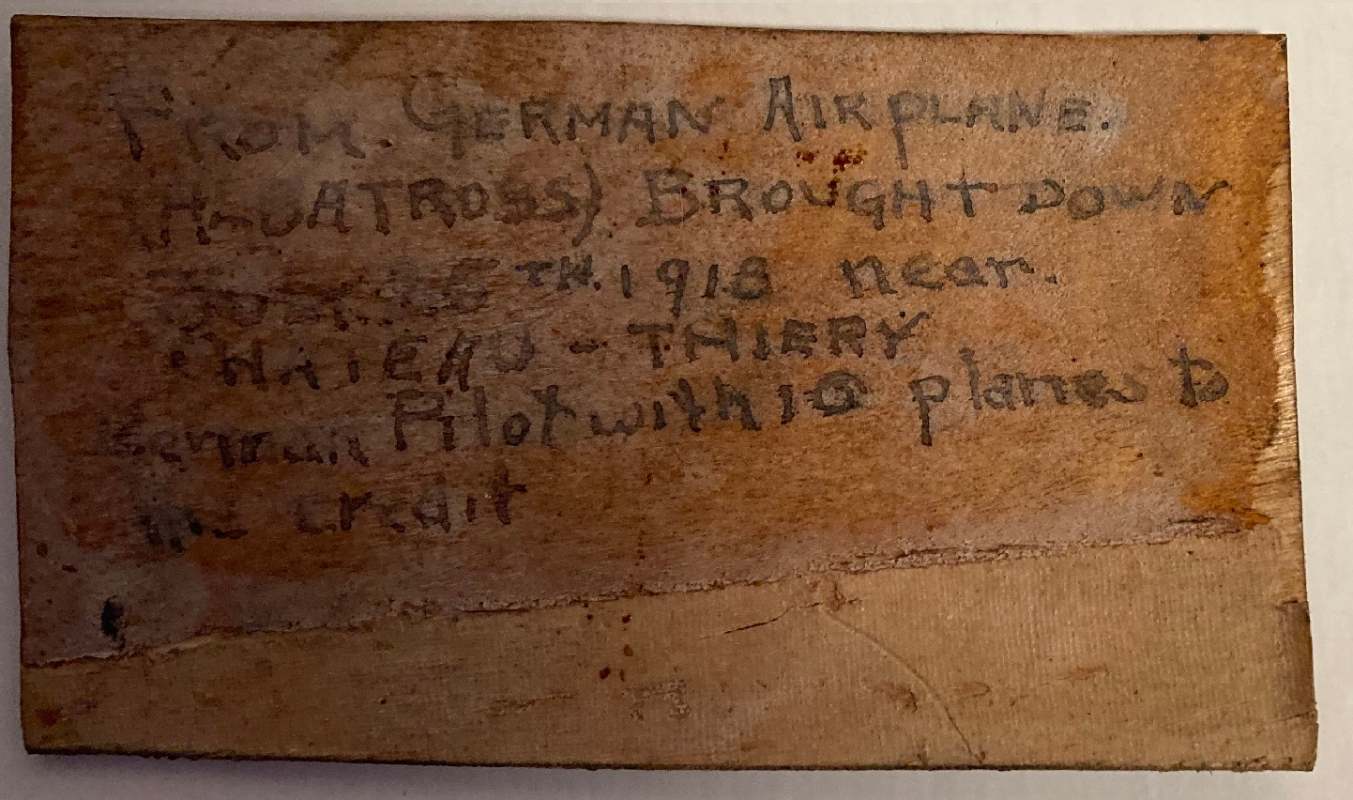 FROM. GERMAN AIRPLANE.
BROUGHT DOWN
TH. 1918 near.
CHATEAU - THIERY
German Pilot with planes to
his credit